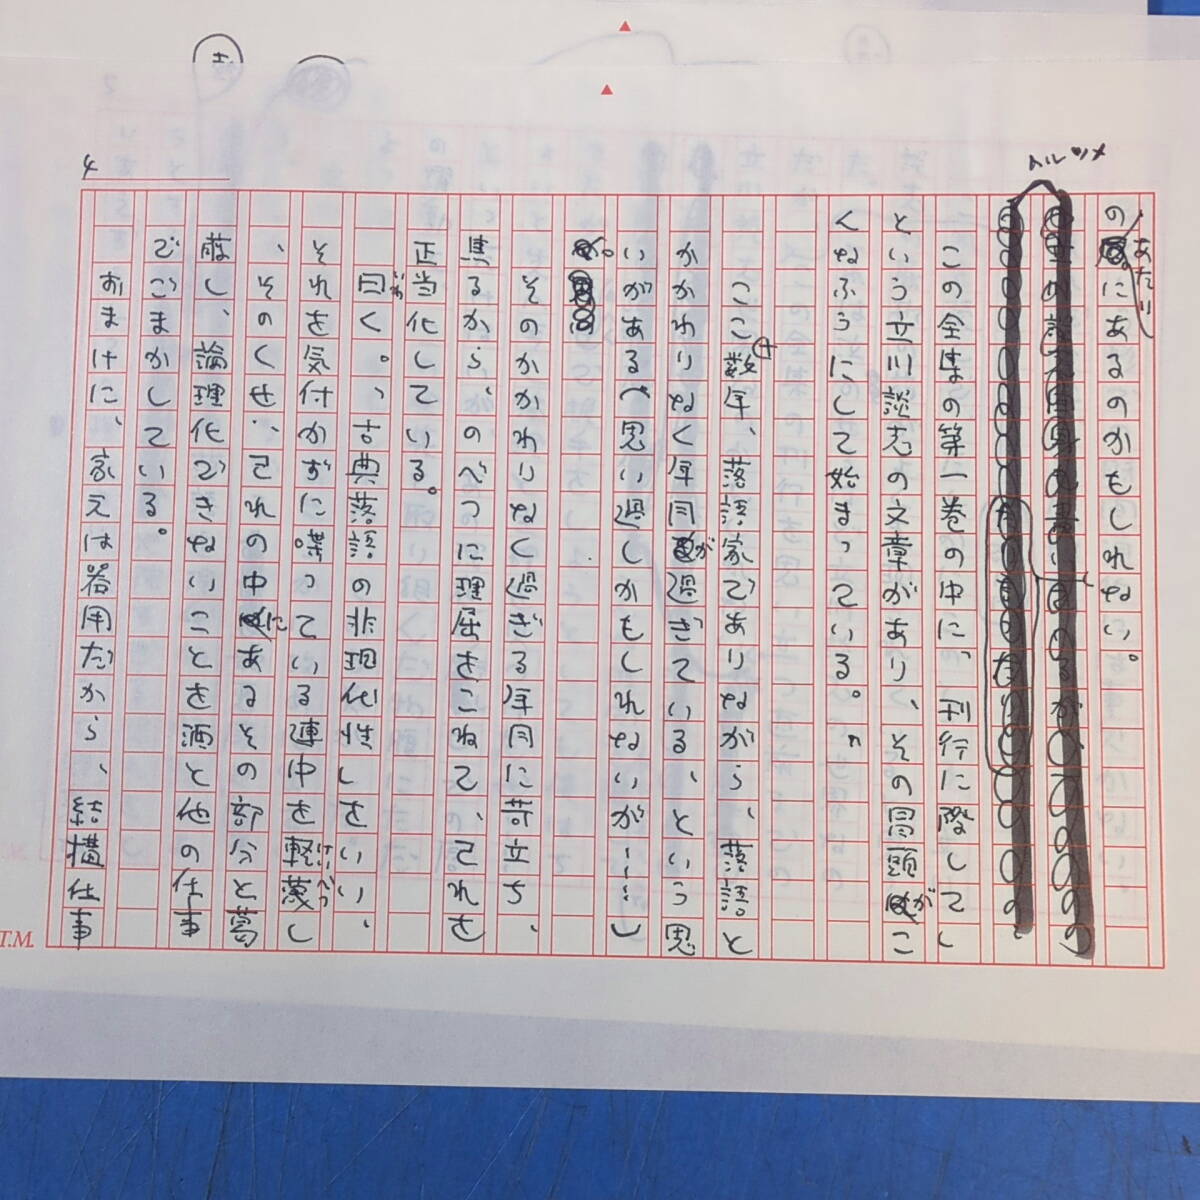 トルツメ
4
のあたりにあるのかもしれない。
この全集の第一巻の中に「刊行に際して」
という立川談志の文章があり、その冒頭がこ
んなふうにして始まっている。
「ここ数年、落語家でありながら、落語と
かかわりなく年月が過ぎている、という思
いがある(思い過しかもしれないが……)
そのかかわりなく過ぎる年月に苛立ち、
焦るから、のべつに理屈をこねて、それを
正当化している。
曰く。「古典落語の非現代性」をいい、
いわ
それを気付かずに喋っている連中を軽蔑し
けいべつ
、そのくせ、己れの中にあるその部分と葛
藤し、論理化できないことを酒と他の仕事
でごまかしている。
おまけに、家元は器用だから、結構仕事
T.M.